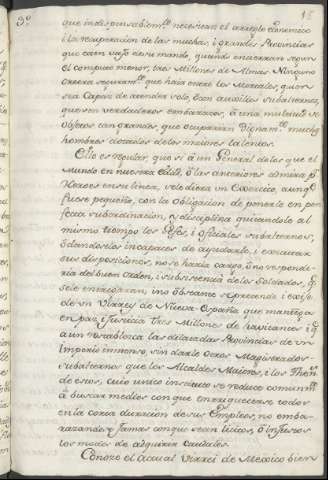 3.º
15
que indispensablem.te necesitan el arreglo economico
i la recuperacion de las muchas, i grandes Provincias
que caen vajo de su mando, quando encierran segun
el computo menor, tres Millones de Almas Ninguno
creerá seguram.te que haia entre los Mortales, quien
sea Capaz de atender solo, bien auxilios subalternos,
que son verdaderos embarazos, á una multitud de
objetos tan grandes, que ocuparian dignam.te muchos
hombres dotados de los maiores talentos.
Ello es regular, que si á un General de los que el
Mundo en nuestra Edad, ó las anteriores admira p.r
Heroes en su linea, se le diera un Exercito, aunq.e
fuese pequeño, con la obligacion de ponerle en per-
fecta subordinacion, y disciplina quitandole al
mismo tiempo los Gefes, i oficiales subalternos,
ó dandoselos incapaces de ayudarle, i executar
sus disposiciones, no se haria cargo, ó no respondi-
ria del buen orden, i subsistencia de los Soldados, q.e
se le entregaran, i no obstante se pretende i exije
de un Virrey de Nueva España que mantenga
en paz, i Justicia tres Millones de havitantes i q.e
aun restablezca las dilatadas Provincias de un
Imperio inmenso, sin darle otros Magistrados
subalternos que los Alcaldes Maiores, i los Then.tes
de estos, cuio unico instituto se reduce comunm.te
á buscar medios con que enriquecerse todos
en la corta duracion de sus Empleos, no emba-
razandose jamas con que sean licitos, ó injustos
los modos de adquirir caudales.
Conoze el actual Virrei de Mexico bien